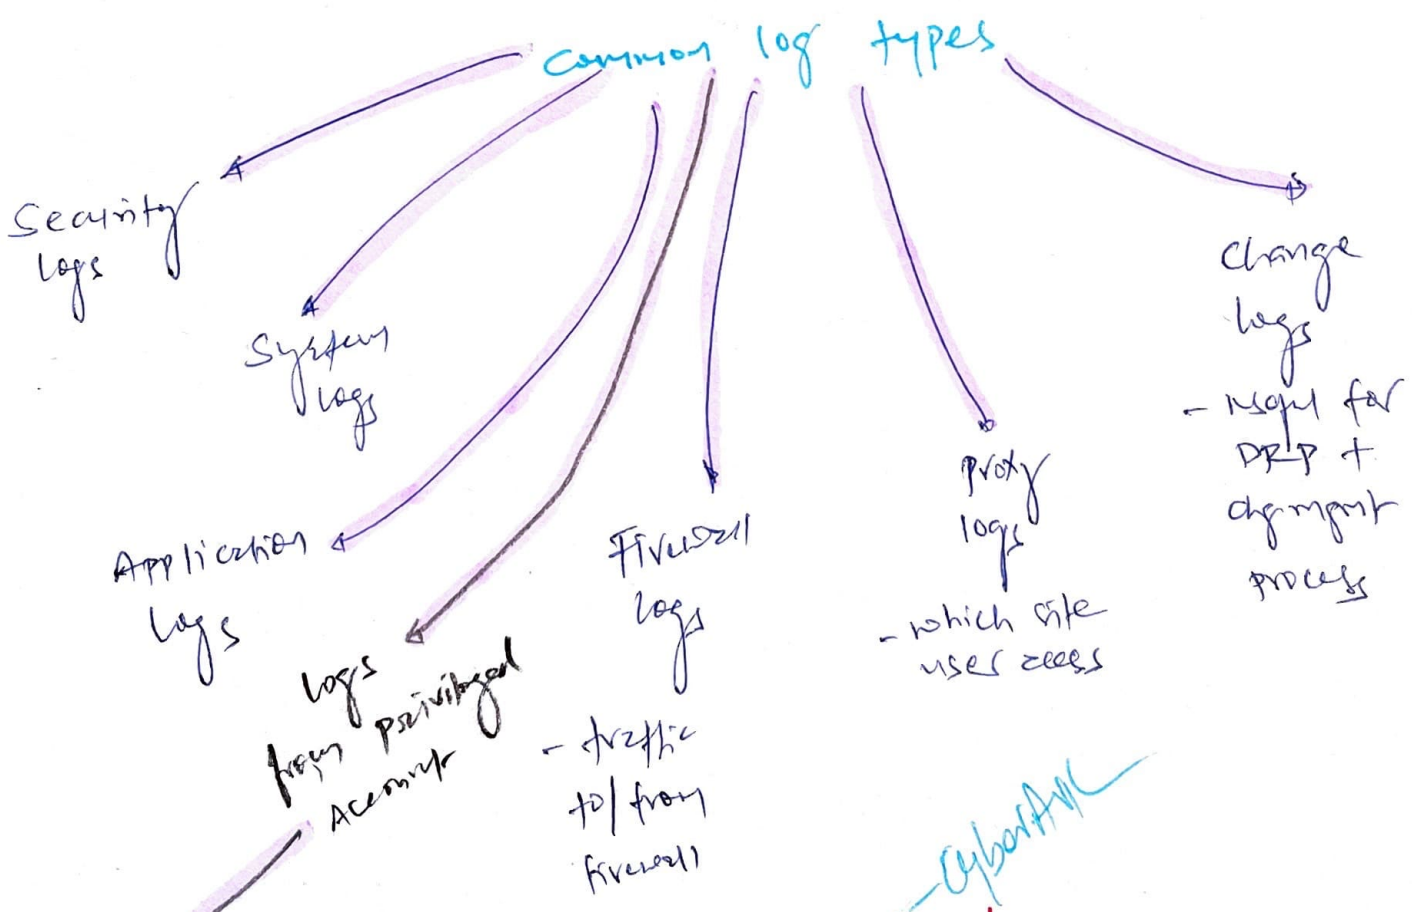 Common log types
Security
logs
System
logs
Application
logs
Logs
from privileged
Account
Firewall
logs
- traffic
to/from
firewall
proxy
logs
- which site
user access
Change
logs
- useful for
DRP +
chg mgmt
process
- CyberArk